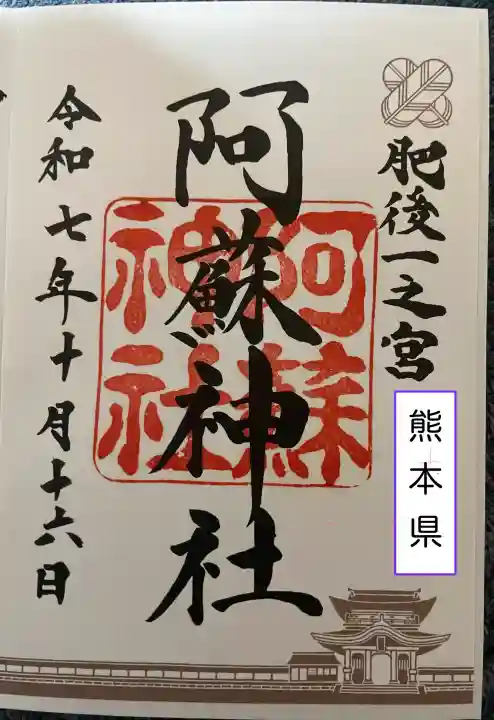 肥後一之宮
熊本県
阿蘇神社
阿蘇神社
令和七年十月十六日